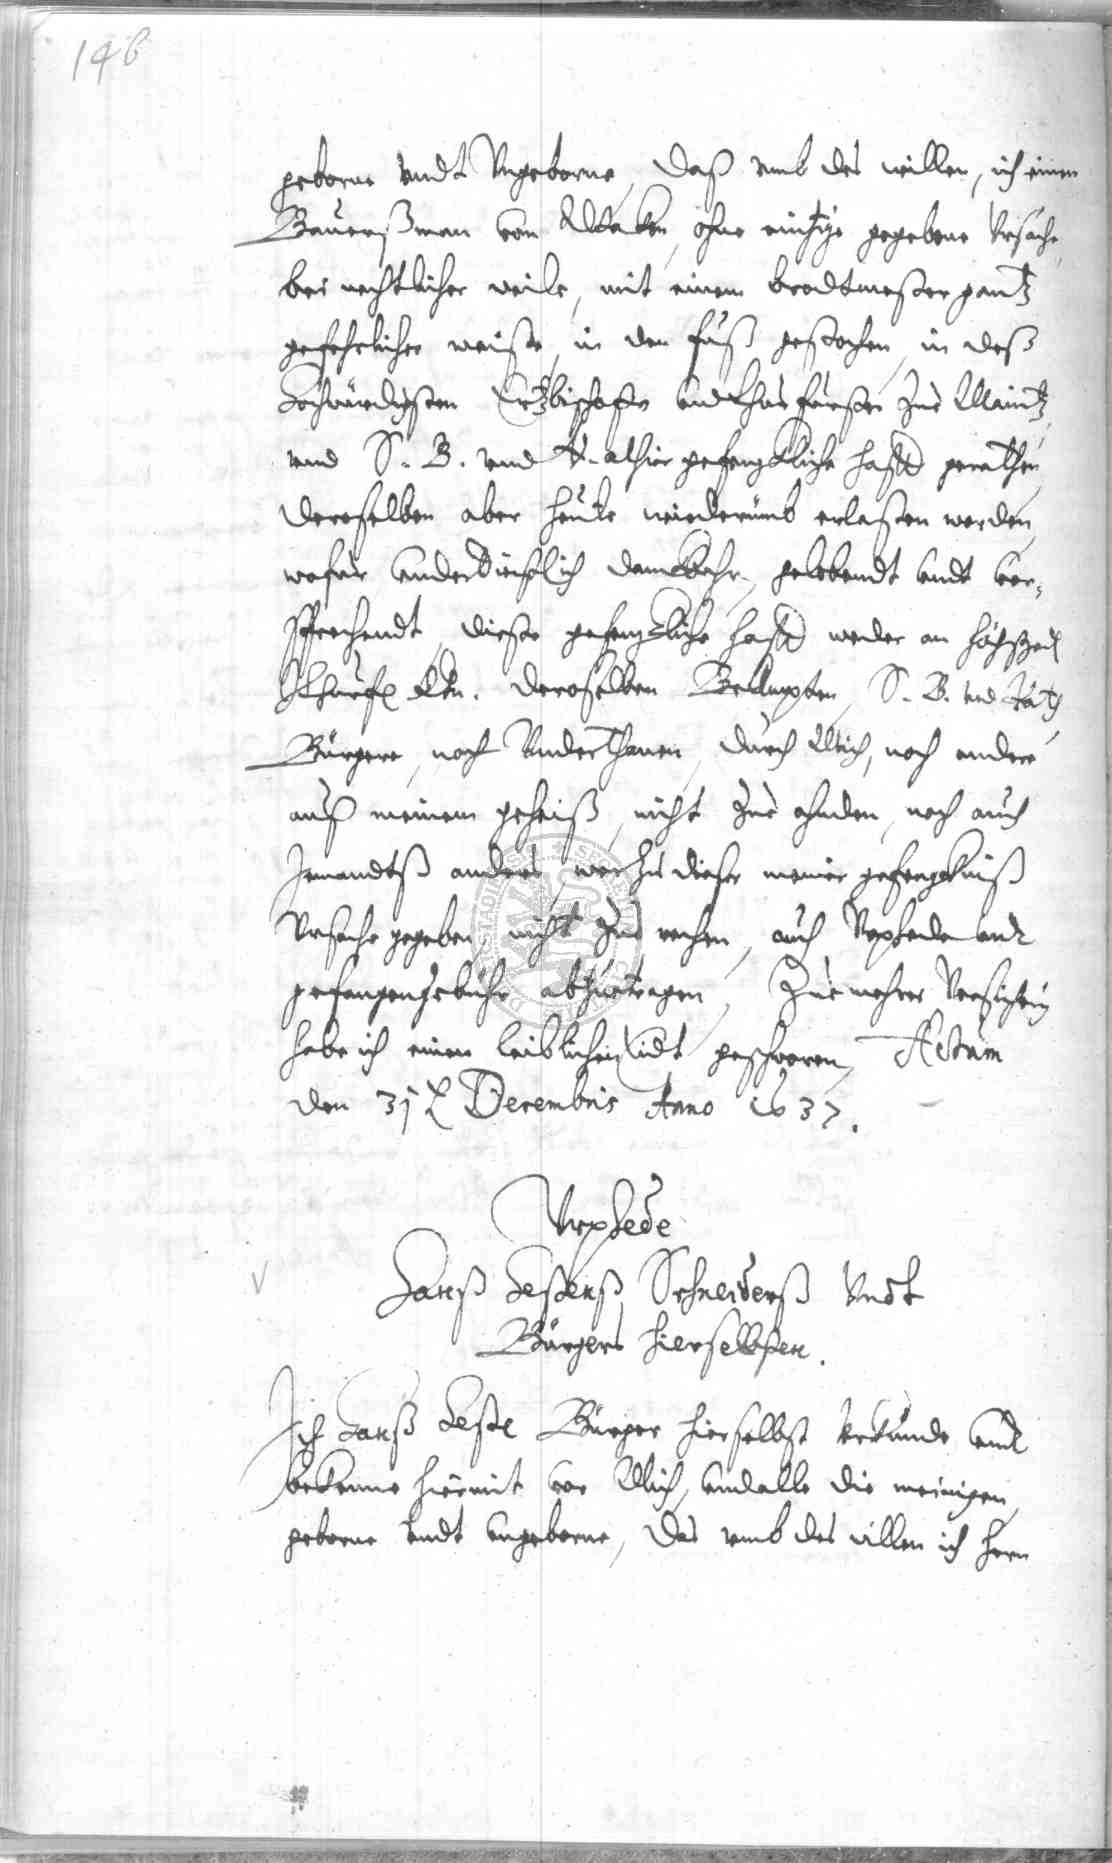 146
geborne undt Ungeborne, daß umb des willen, ich einen
Baurßman von ohne eintzige gegebene Ursache,
bei nechtlicher weile, mit einem brodtmeßer gantz
gefehrlicher weiße, in den fuß gestochen, in deß
Hochwürdigsten Ertzbischoffs und Churfürsten zue Maintz,
und S. B. und R. alhier gefengkliche hafft gerathen,
deroselben aber heute wiederümb erlaßen worden,
wofür underdienstlich danckbahr, gelobendt undt ver-
sprechendt, dieße gefengkliche hafft weder an höchstged.
Churf. Gn. deroselben Beampten, S. B. und Rath,
Bürgere, noch Underthanen, durch Mich, noch andere
auß meinem geheiß, nicht zue ahnden, noch auch
Jemandtß anders, wer zu dießer meiner gefengkniß
Ursache gegeben, nicht zue rechen, auch Urphede undt
gefangengebühr abzuetragen, Zue mehrer Versicherung
habe ich einen leiblichen Eidt geschworen, Actum
den 31 Decembris Anno 1637.
Urphede
Hanß Heßenß Schneiderß Undt
Bürgers hierselbsten.
Ich Hanß Heße Bürger hierselbst Urkunde undt
bekenne hiermit vor Mich, und alle die meinigen,
geborne undt ungeborne, das umb des willen ich hern
STADTARCHIV